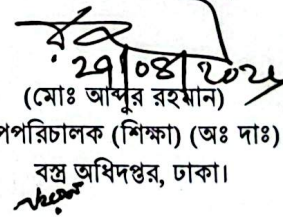 29/04/2025
(মোঃ আব্দুর রহমান)
পপরিচালক (শিক্ষা) (অঃ দাঃ)
বস্ত্র অধিদপ্তর, ঢাকা।